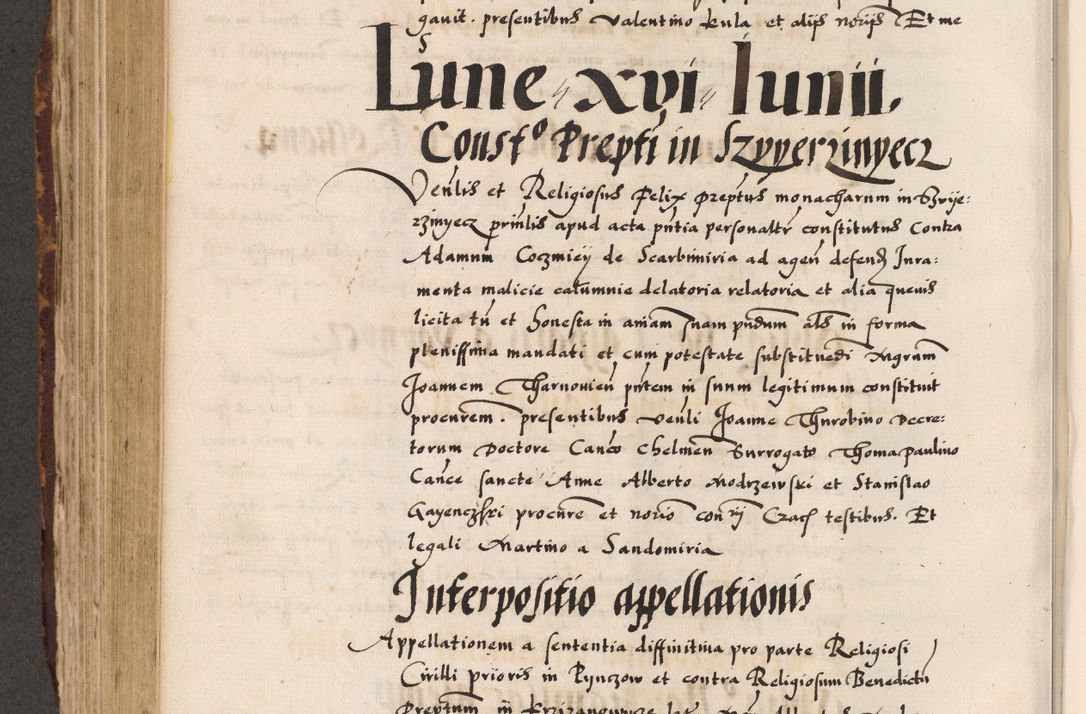 gavit. presentibus Valentino Kula et alijs norijs Et me
Lune xvi Iunii.
Const° Prepti in Szvyerzinyecz
Venlis et Religiosus Felix preptus monacharum in Szvije:
rzinyecz prinlis apud acta pntia personalr constitutus Contra
Adamum Coczmiey de Scarbimiria ad agen defend Iura:
menta malicie calumnie delatoria relatoria et alia quevis
licita tn et honesta in aniam suam pndum als in forma
plenissima mandati et cum potestate substituedi Mgrum
Joannem Tharnovien pntem in suum legitimum constituit
procurem. presentibus venli Joanne Thurobino Decre:
torum Doctore Canco Chelmen Surrogato Thoma paulino
Cance sancte Anne Alberto Modrzewski et Stanislao
Gayenczski procure et norio conrij Crac testibus. Et
legali Martino a Sandomiria
Interpositio appellationis
Appellationem a sententia diffinitiva pro parte Religiosi
Cirilli prioris in Pynczow et contra Religiosum Benedictu
Preptum in